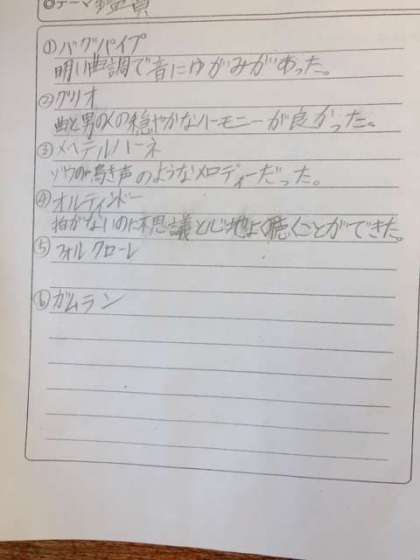 ◎テーマ 鑑賞
①バグパイプ
明い曲調で音にゆがみがあった。
②グリオ
曲と男の人の穏やかなハーモニーが良かった。
③メヘテルハーネ
ゾウの鳴き声のようなメロディーだった。
④オルティンドー
拍がないのに不思議と心地よく聴くことができた。
⑤フォルクローレ
⑥ガムラン